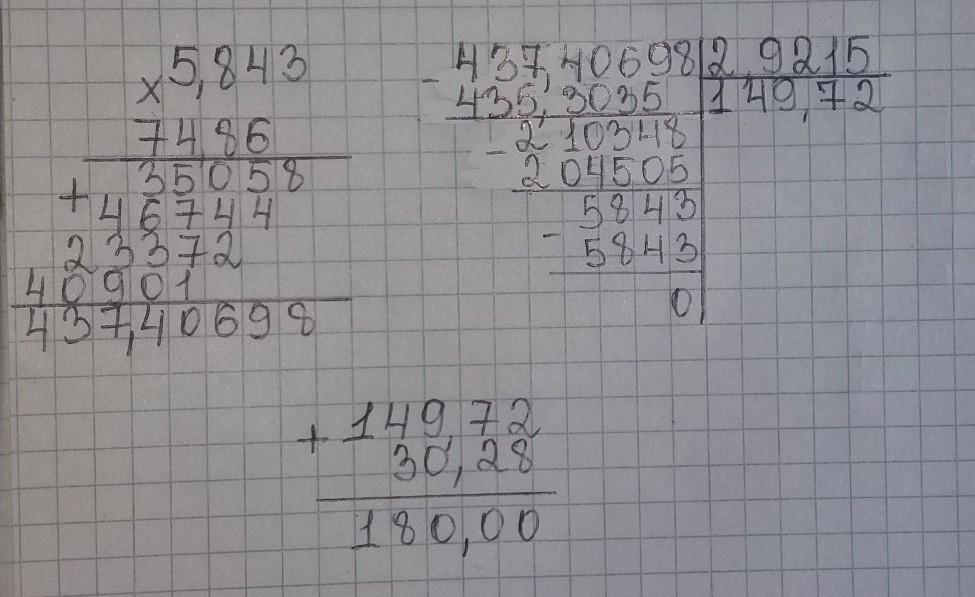 × 5,843
7486
+ 35058
46744
23372
40901
437,40698
- 437,40698 | 2,9215
435,3035 | 149,72
- 2 10348
2 04505
- 5843
5843
0
+ 149,72
30,28
180,00